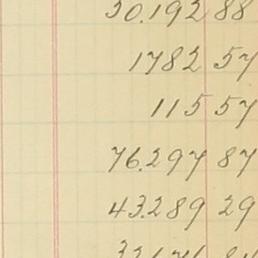 30.192 88
1782 57
115 57
76.297 87
43.289 29